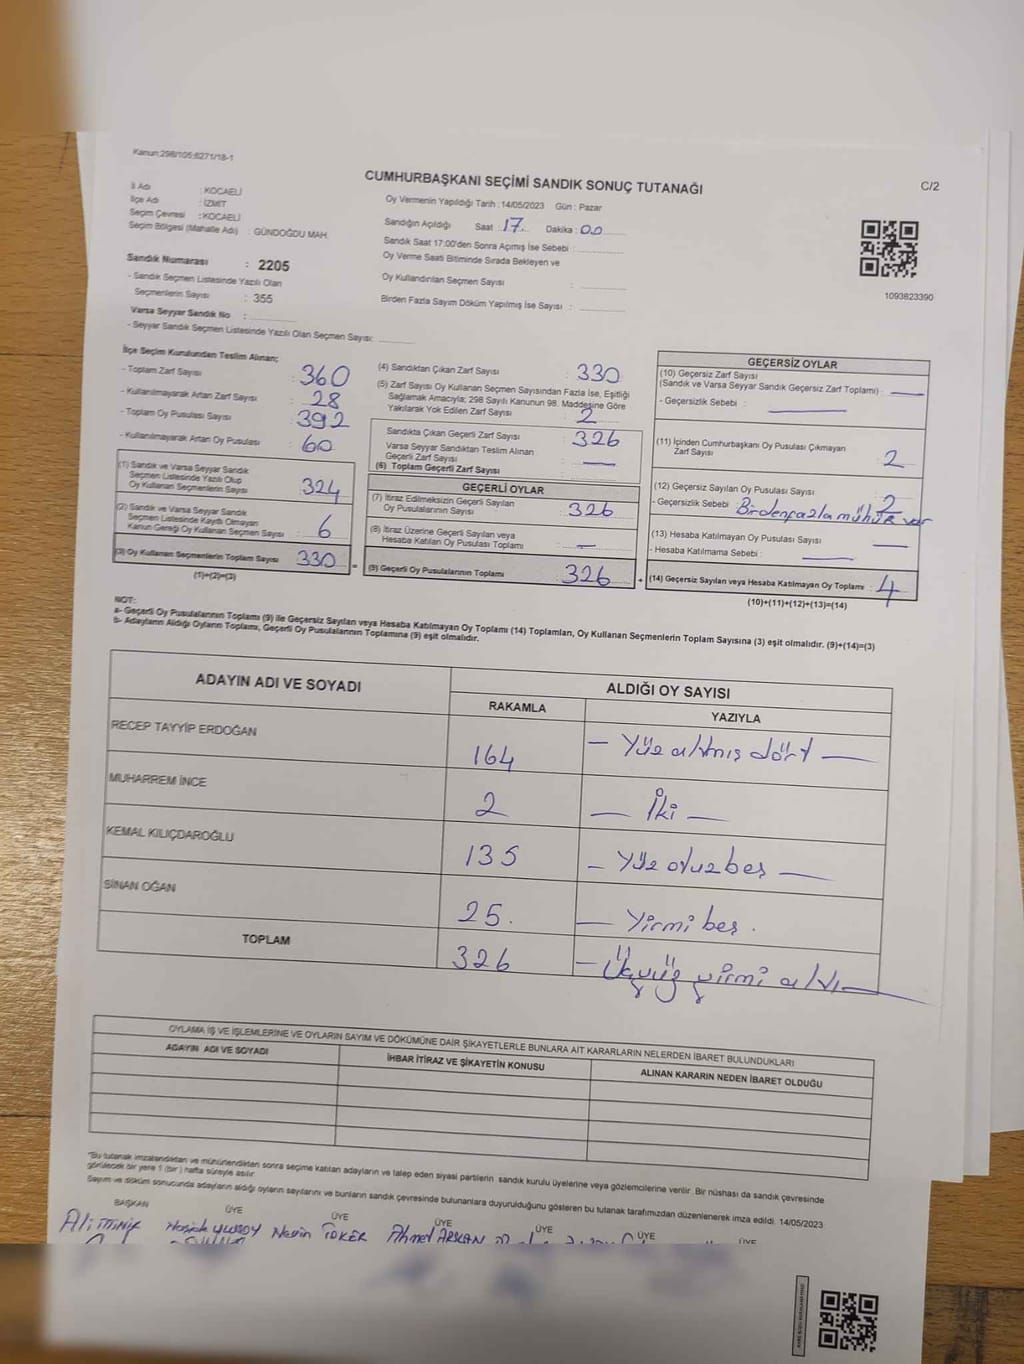 Kanun;298/105;6271/18-1
CUMHURBAŞKANI SEÇİMİ SANDIK SONUÇ TUTANAĞI
C/2
İl Adı : KOCAELİ
İlçe Adı : İZMİT
Seçim Çevresi : KOCAELİ
Seçim Bölgesi (Mahalle Adı) : GÜNDOĞDU MAH.
Sandık Numarası : 2205
- Sandık Seçmen Listesinde Yazılı Olan
Seçmenlerin Sayısı : 355
Varsa Seyyar Sandık No :
- Seyyar Sandık Seçmen Listesinde Yazılı Olan Seçmen Sayısı:
Oy Vermenin Yapıldığı Tarih : 14/05/2023 Gün : Pazar
Sandığın Açıldığı Saat : 17 Dakika : 00
Sandık Saat 17:00'den Sonra Açımış İse Sebebi :
Oy Verme Saati Bitiminde Sırada Bekleyen ve
Oy Kullandırılan Seçmen Sayısı :
Birden Fazla Sayım Döküm Yapılmış İse Sayısı :
1093823390
İlçe Seçim Kurulundan Teslim Alınan;
- Toplam Zarf Sayısı : 360
- Kullanılmayarak Artan Zarf Sayısı : 28
- Toplam Oy Pusulası Sayısı : 392
- Kullanılmayarak Artan Oy Pusulası : 60
(1) Sandık ve Varsa Seyyar Sandık
Seçmen Listesinde Yazılı Olup
Oy Kullanan Seçmenlerin Sayısı : 324
(2) Sandık ve Varsa Seyyar Sandık
Seçmen Listesinde Kayıtlı Olmayan
Kanun Gereği Oy Kullanan Seçmen Sayısı : 6
(3) Oy Kullanan Seçmenlerin Toplam Sayısı : 330
(1)+(2)=(3)
(4) Sandıktan Çıkan Zarf Sayısı : 330
(5) Zarf Sayısı Oy Kullanan Seçmen Sayısından Fazla İse, Eşitliği
Sağlamak Amacıyla; 298 Sayılı Kanunun 98. Maddesine Göre
Yakılarak Yok Edilen Zarf Sayısı : 2
Sandıkta Çıkan Geçerli Zarf Sayısı : 326
Varsa Seyyar Sandıktan Teslim Alınan
Geçerli Zarf Sayısı : —
(6) Toplam Geçerli Zarf Sayısı
GEÇERLİ OYLAR
(7) İtiraz Edilmeksizin Geçerli Sayılan
Oy Pusulalarının Sayısı : 326
(8) İtiraz Üzerine Geçerli Sayılan veya
Hesaba Katılan Oy Pusulası Toplamı : —
(9) Geçerli Oy Pusulalarının Toplamı : 326
GEÇERSİZ OYLAR
(10) Geçersiz Zarf Sayısı
(Sandık ve Varsa Seyyar Sandık Geçersiz Zarf Toplamı) : —
- Geçersizlik Sebebi : —
(11) İçinden Cumhurbaşkanı Oy Pusulası Çıkmayan
Zarf Sayısı : 2
(12) Geçersiz Sayılan Oy Pusulası Sayısı : 2
- Geçersizlik Sebebi : Birdenfazla mühür var
(13) Hesaba Katılmayan Oy Pusulası Sayısı : —
- Hesaba Katılmama Sebebi : —
(14) Geçersiz Sayılan veya Hesaba Katılmayan Oy Toplamı : 4
(10)+(11)+(12)+(13)=(14)
NOT:
a- Geçerli Oy Pusulalarının Toplamı (9) ile Geçersiz Sayılan veya Hesaba Katılmayan Oy Toplamı (14) Toplamları, Oy Kullanan Seçmenlerin Toplam Sayısına (3) eşit olmalıdır. (9)+(14)=(3)
b- Adayların Aldığı Oyların Toplamı, Geçerli Oy Pusulalarının Toplamına (9) eşit olmalıdır.
ADAYIN ADI VE SOYADI ALDIĞI OY SAYISI
RAKAMLA YAZIYLA
RECEP TAYYİP ERDOĞAN 164 — Yüz altmış dört —
MUHARREM İNCE 2 — İki —
KEMAL KILIÇDAROĞLU 135 — Yüz otuz beş —
SİNAN OĞAN 25. — Yirmi beş .
TOPLAM 326 — Üçyüz yirmi altı —
OYLAMA İŞ VE İŞLEMLERİNE VE OYLARIN SAYIM VE DÖKÜMÜNE DAİR ŞİKAYETLERLE BUNLARA AİT KARARLARIN NELERDEN İBARET BULUNDUKLARI
ADAYIN ADI VE SOYADI İHBAR İTİRAZ VE ŞİKAYETİN KONUSU ALINAN KARARIN NEDEN İBARET OLDUĞU
"Bu tutanak imzalandıktan ve mühürlendikten sonra seçime katılan adayların ve talep eden siyasi partilerin sandık kurulu üyelerine veya gözlemcilerine verilir. Bir nüshası da sandık çevresinde
görülecek bir yere 1 (bir) hafta süreyle asılır.
Sayım ve döküm sonucunda adayların aldığı oyların sayılarını ve bunların sandık çevresinde bulunanlara duyurulduğunu gösteren bu tutanak tarafımızdan düzenlenerek imza edildi. 14/05/2023
BAŞKAN ÜYE ÜYE ÜYE ÜYE ÜYE ÜYE
Ali Nesrin TOKER Ahmet ARSLAN